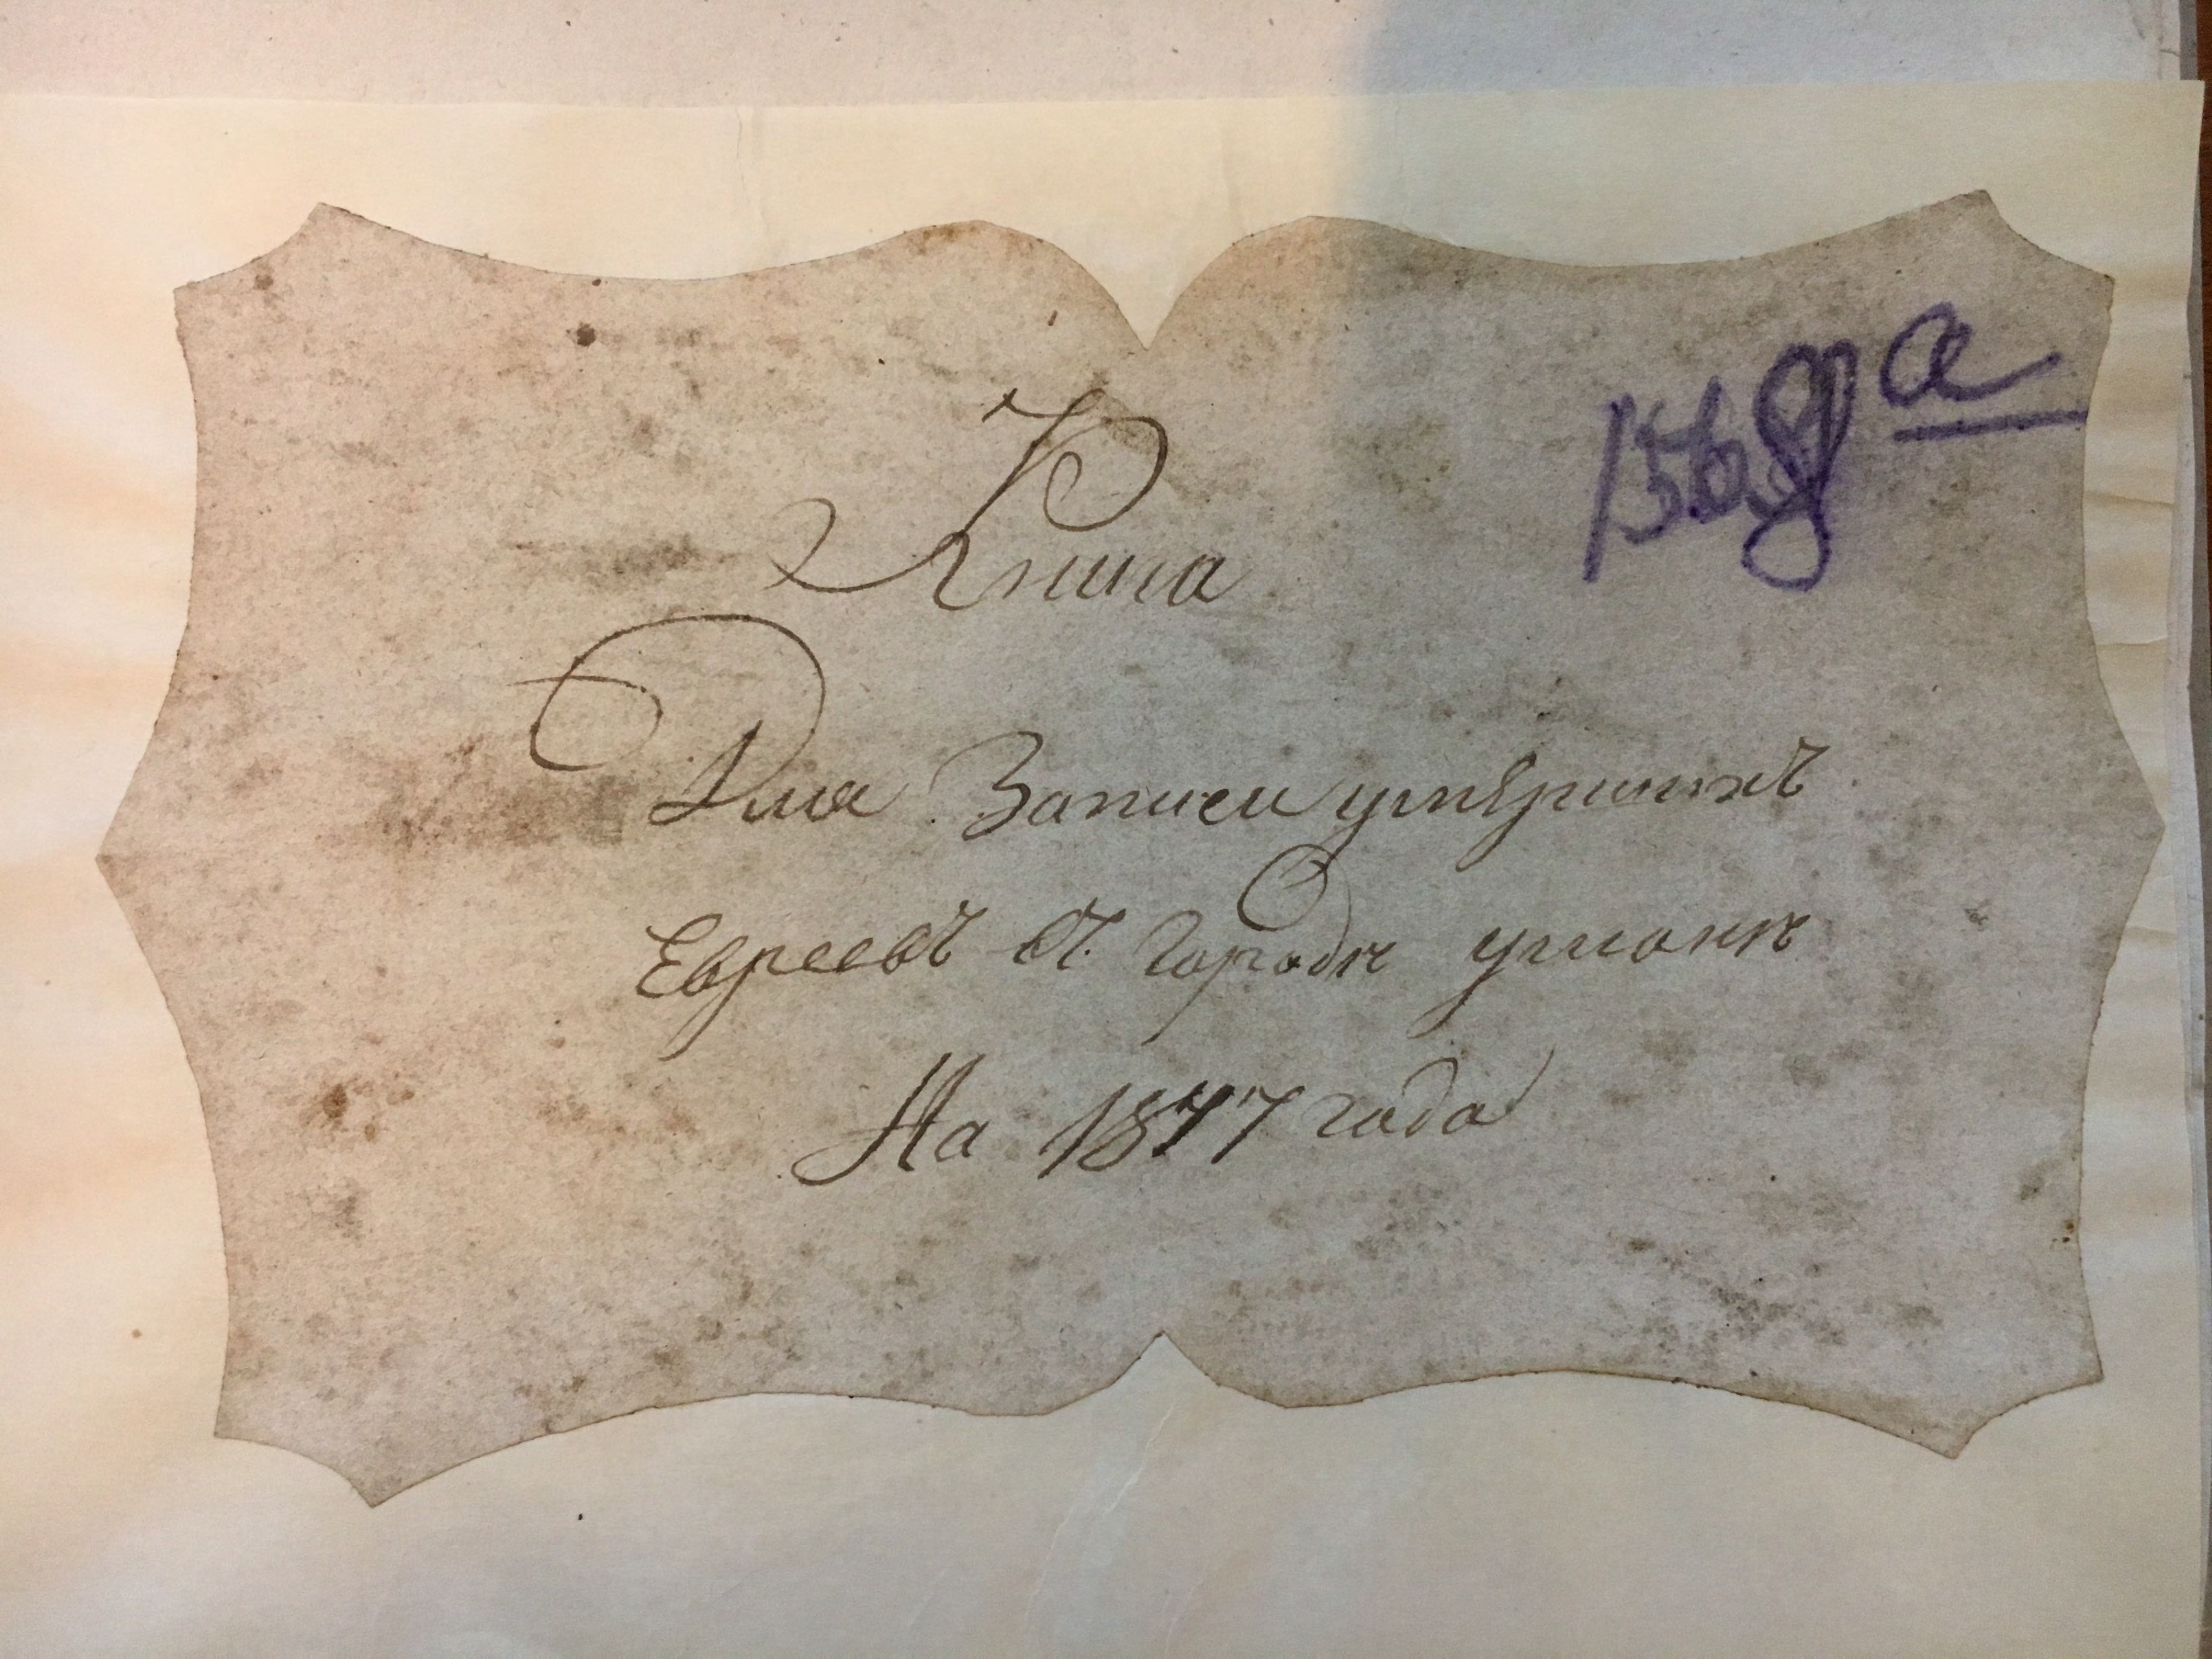 Книга
Для Записи умершихъ
Евреевъ въ городѣ уманѣ
На 1877 года